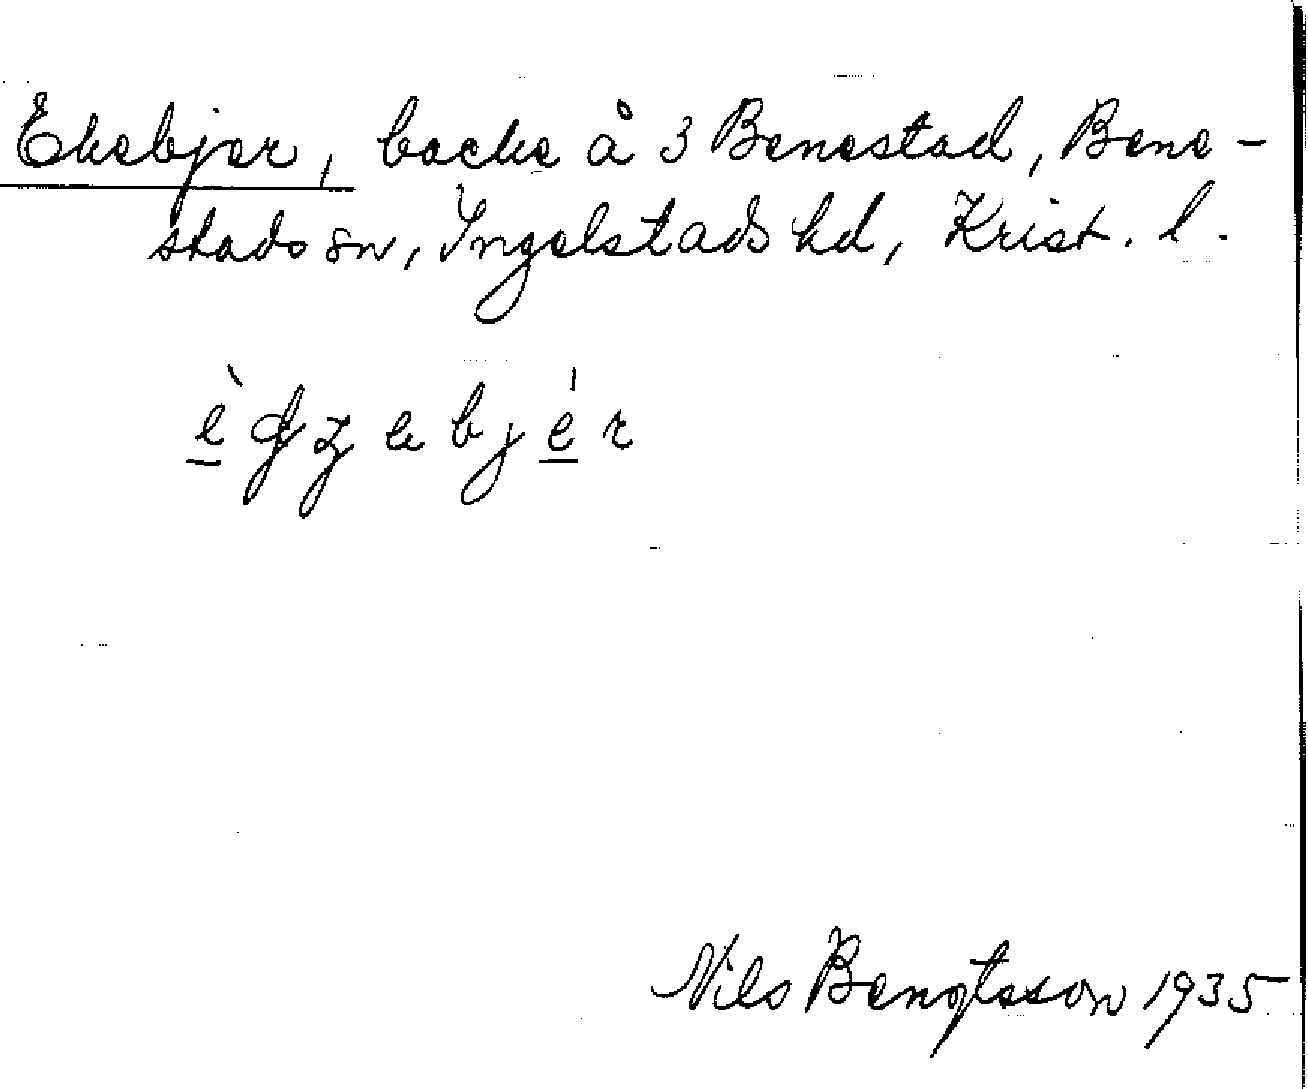 Ekebjer, backe å 3 Benestad, Bene-
stads sn, Ingelstads hd, Krist. l.
Nils Bengtsson 1935